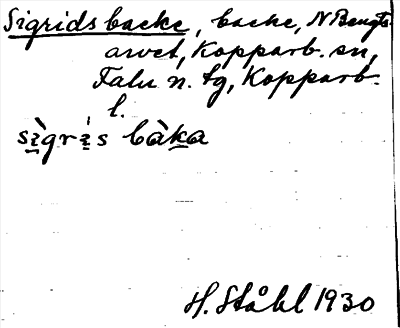 Sigridsbacke, backe, N Bengts
arvet, Kopparb. sn,
Falu n. tg, Kopparb.
l.
sìgrìs bàka
H. Ståhl 1930